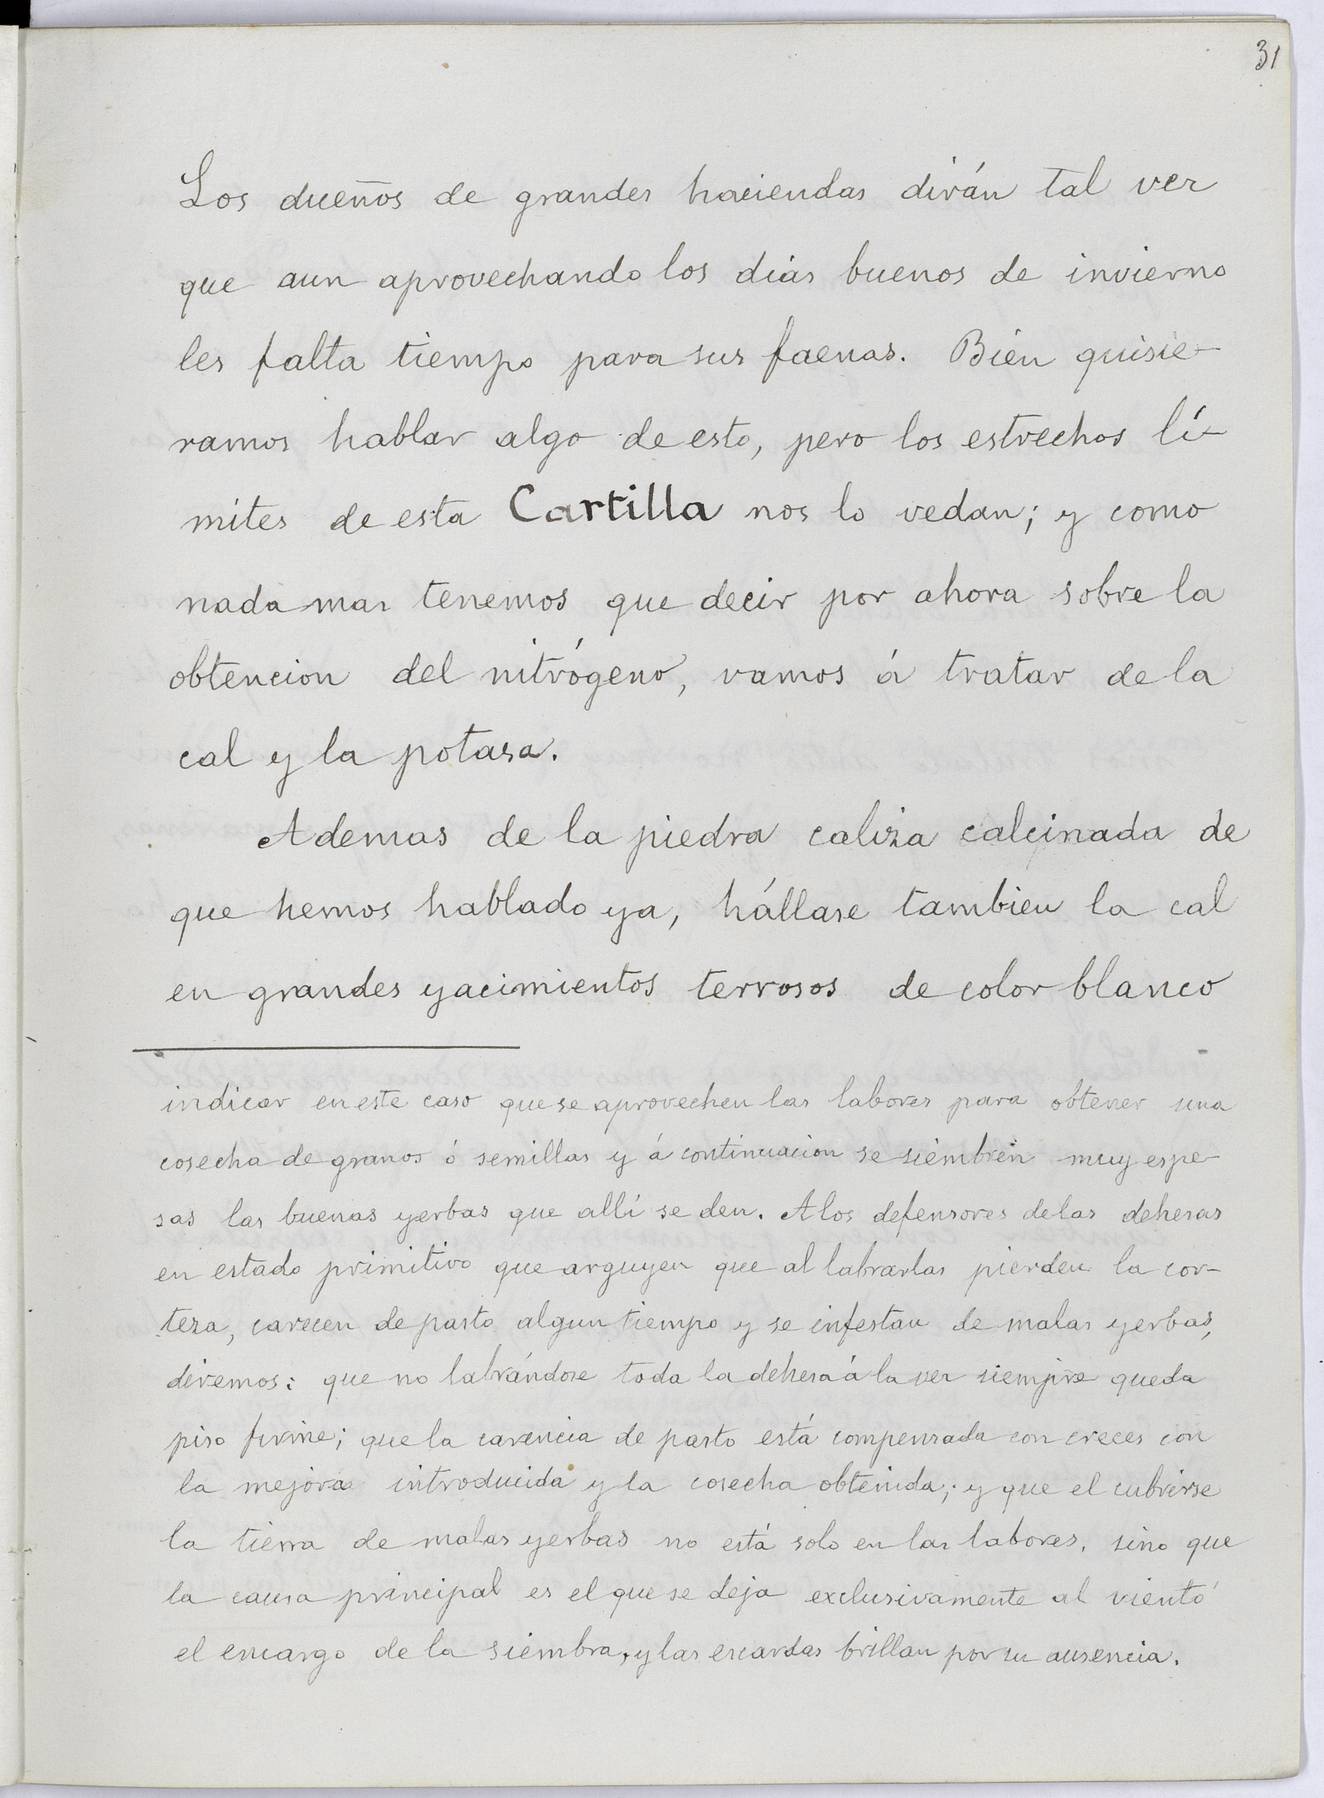 31
Los dueños de grandes haciendas dirán tal vez
que aun aprovechando los dias buenos de invierno
les falta tiempo para sus faenas. Bien quisie-
ramos hablar algo de esto, pero los estrechos lí-
mites de esta Cartilla nos lo vedan; y como
nada mas tenemos que decir por ahora sobre la
obtencion del nitrógeno, vamos á tratar de la
cal y la potasa.
Ademas de la piedra caliza calcinada de
que hemos hablado ya, hállase tambien la cal
en grandes yacimientos terrosos de color blanco
indicar en este caso que se aprovechen las labores para obtener una
cosecha de granos ó semillas y á continuacion se siembren muy espe-
sas las buenas yerbas que allí se den. A los defensores de las dehesas
en estado primitivo que arguyen que al labrarlas pierden la cor-
teza, carecen de pasto algun tiempo y se infestan de malas yerbas,
diremos: que no labrándose toda la dehesa á la vez siempre queda
piso firme; que la carencia de pasto está compensada con creces con
la mejora introducida y la cosecha obtenida; y que el cubrirse
la tierra de malas yerbas no está solo en las labores, sino que
la causa principal es el que se deja exclusivamente al viento
el encargo de la siembra, y las escardas brillan por su ausencia.